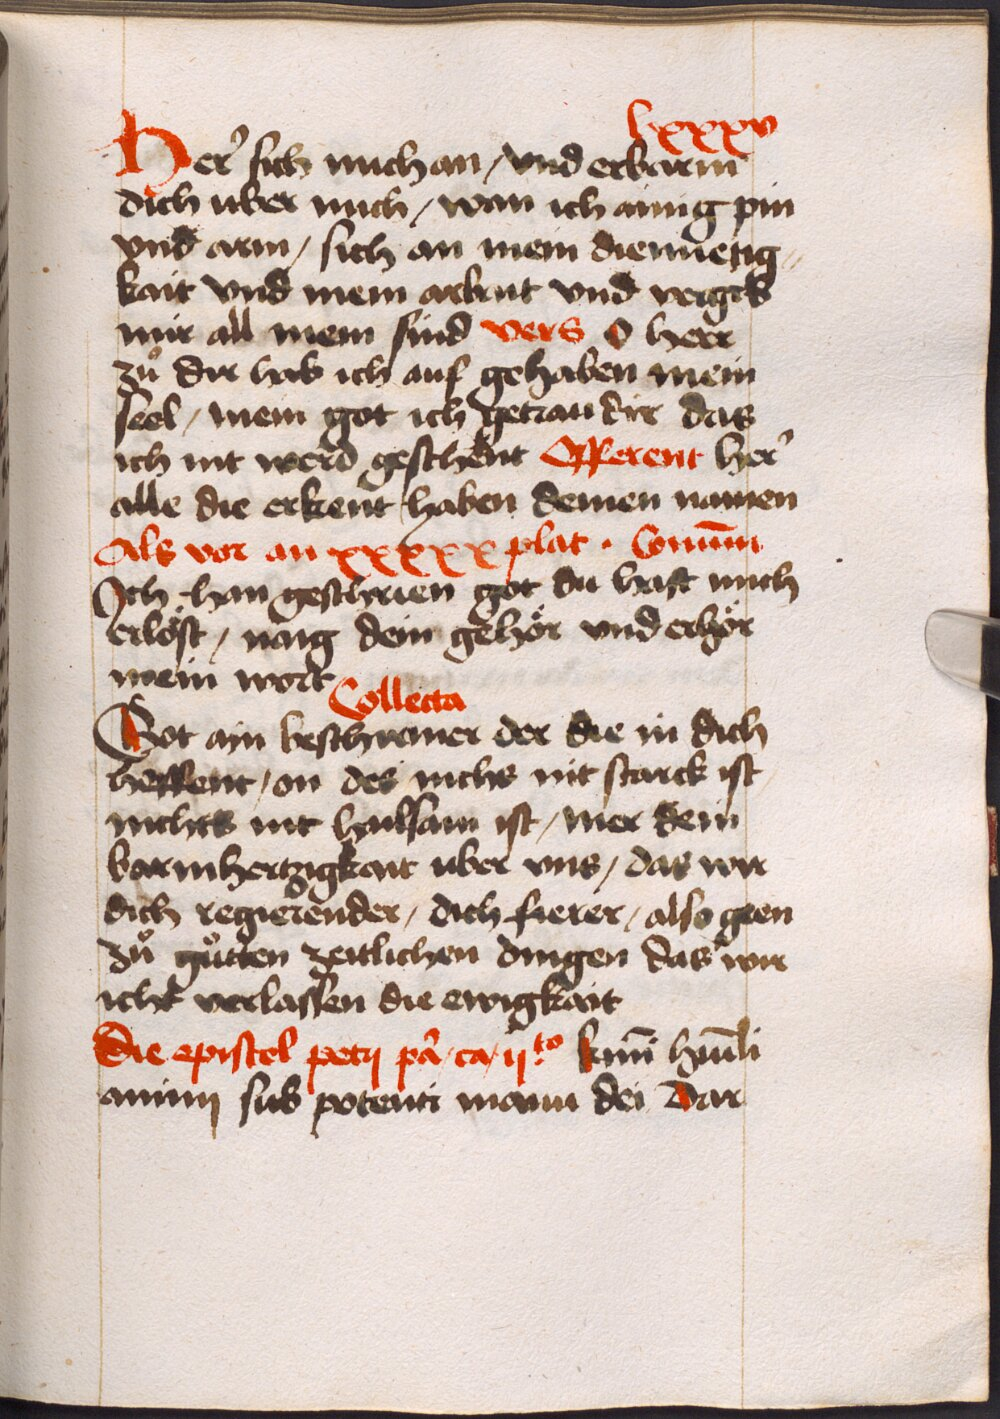 lxxxv
Her᷑ sich mich an / vnd erbarm
dich vber mich / wan ich ainig pin
vnd arm / sich an mein diemietig//
kait vnd mein arbait vnd vergeb
mir all mein sind vers O herr
zů dir hab ich auf gehaben mein
seel / mein got ich getrau dir das
ich nit werd geschent Offerent her᷑
alle die erkent haben deinen namen
Als vor an xxxxx plat · Comu̅m
Ich han geschrien got du hast mich
erlöst / naig dein gehör vnd erhör
mein wort
Collecta
Got ain beschirmer der die in dich
hoffent / on des nichs nit starck ist
nichts nit hailsam ist / mer dein
barmhertzigkait vber vns / das wir
dich regierender / dich fierer / also geen
zů gůtten zeitlichen dingen das wir
icht verlassen die ewigkait
Die epistel petrj pa᷑ · ca · ij·to kmi̅ hu̅ili
aminj sub potenti manu dei Dar